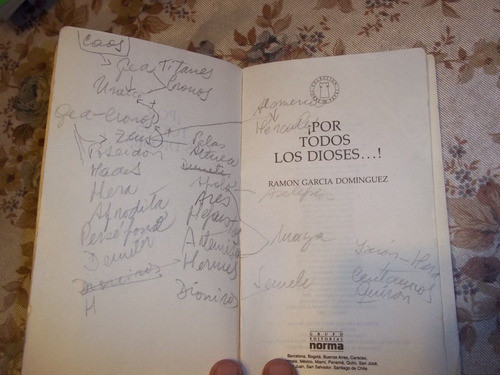 Caos
Gea Titanes
Urano Cronos
Gea-Cronos
Zeus
Poseidon
Hades
Hera
Afrodita
Persefona
Demeter
Dionisos
H
Atenea
Demeter
Apolo
Ares
Artemisa
Hermes
Dionisos
Hercules
Maya
Semele
Hera
Centauros
¡POR
TODOS
LOS DIOSES...!
RAMON GARCIA DOMINGUEZ
GRUPO
EDITORIAL
norma
Barcelona, Bogotá, Buenos Aires, Caracas,
México, Miami, Panamá, Quito, San José,
Juan, San Salvador, Santiago de Chile